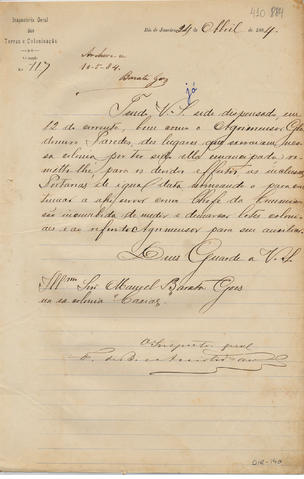 410 884
Inspectoria Geral
das
Terras e Colonisação
Rio de Janeiro, 24 de Abril de 1884.
N. 117
Archive-se
10-5-84.
Barata Goes
já
Tendo V. S. sido dispensado, em
12 do corrente, bem como o Agrimensor
Paredes, dos lugares que serviam nessa
colonia por ter sido ella emancipada, re-
metto-lhe, para os devidos effeitos, as inclusas
Portarias de igual data nomeando o para con-
tinuar a servir como Chefe da Commissão
incumbida de medir e demarcar lotes coloni-
aes e ao referido Agrimensor para seu auxiliar.
Deus Guarde a V. S.
Illmo Snr Manoel Barata Goes
na ex colonia Caxias
O Inspector geral
DIR-140